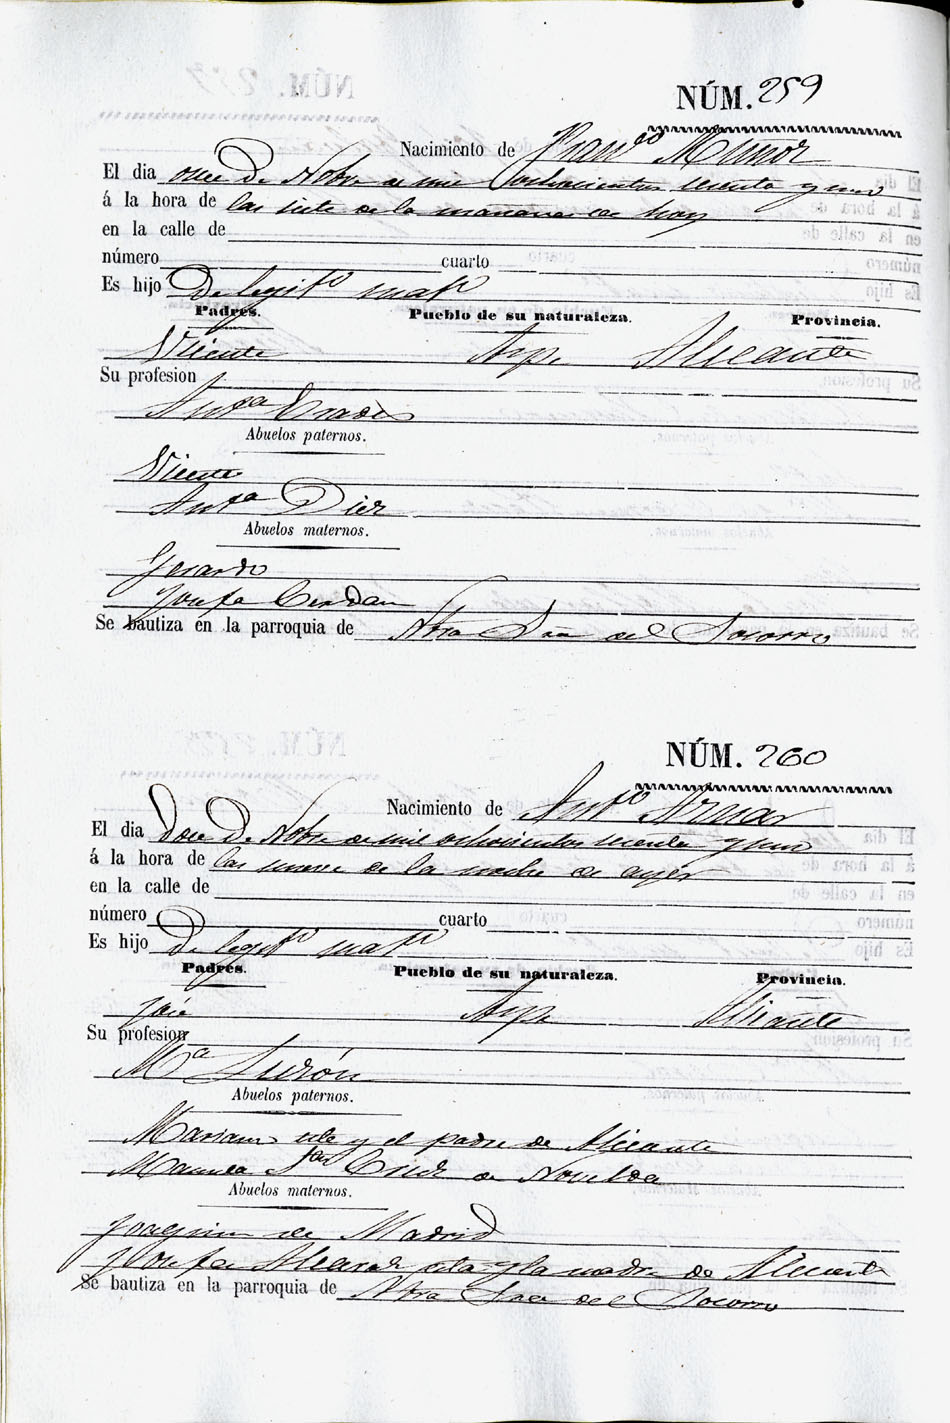 NÚM. 259
Nacimiento de Franco Muñoz
El dia once de Nobre de mil ochocientos sesenta y uno
á la hora de las siete de la manana de hoy
en la calle de
número cuarto
Es hijo de legito mato
Padres. Pueblo de su naturaleza. Provincia.
Vicente Aspe Alicante
Su profesion
Anta Prades
Abuelos paternos.
Vicente
Anta Diez
Abuelos maternos.
Gerardo
Josefa Cerdan
Se bautiza en la parroquia de Ntra Sra del Socorro
NÚM. 260
Nacimiento de Anto Aznar
El dia doce de Nobre de mil ochocientos sesenta y uno
á la hora de las nueve de la noche de ayer
en la calle de
número cuarto
Es hijo de legito mato
Padres. Pueblo de su naturaleza. Provincia.
José Aspe Alicante
Su profesion
Ma
Abuelos paternos.
Mariano este y el padre de Alicante
Manuela Sta Cruz de Novelda
Abuelos maternos.
Joaquin de Madrid
Josefa esta y la madre de Alicante
Se bautiza en la parroquia de Ntra Sra del Socorro